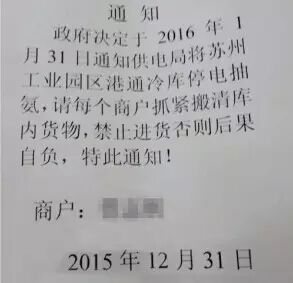 通知
政府决定于 2016 年 1
月 31 日通知供电局将苏州
工业园区港通冷库停电抽
氨,请每个商户抓紧搬清库
内货物,禁止进货否则后果
自负,特此通知!
商户:
2015 年 12 月 31 日